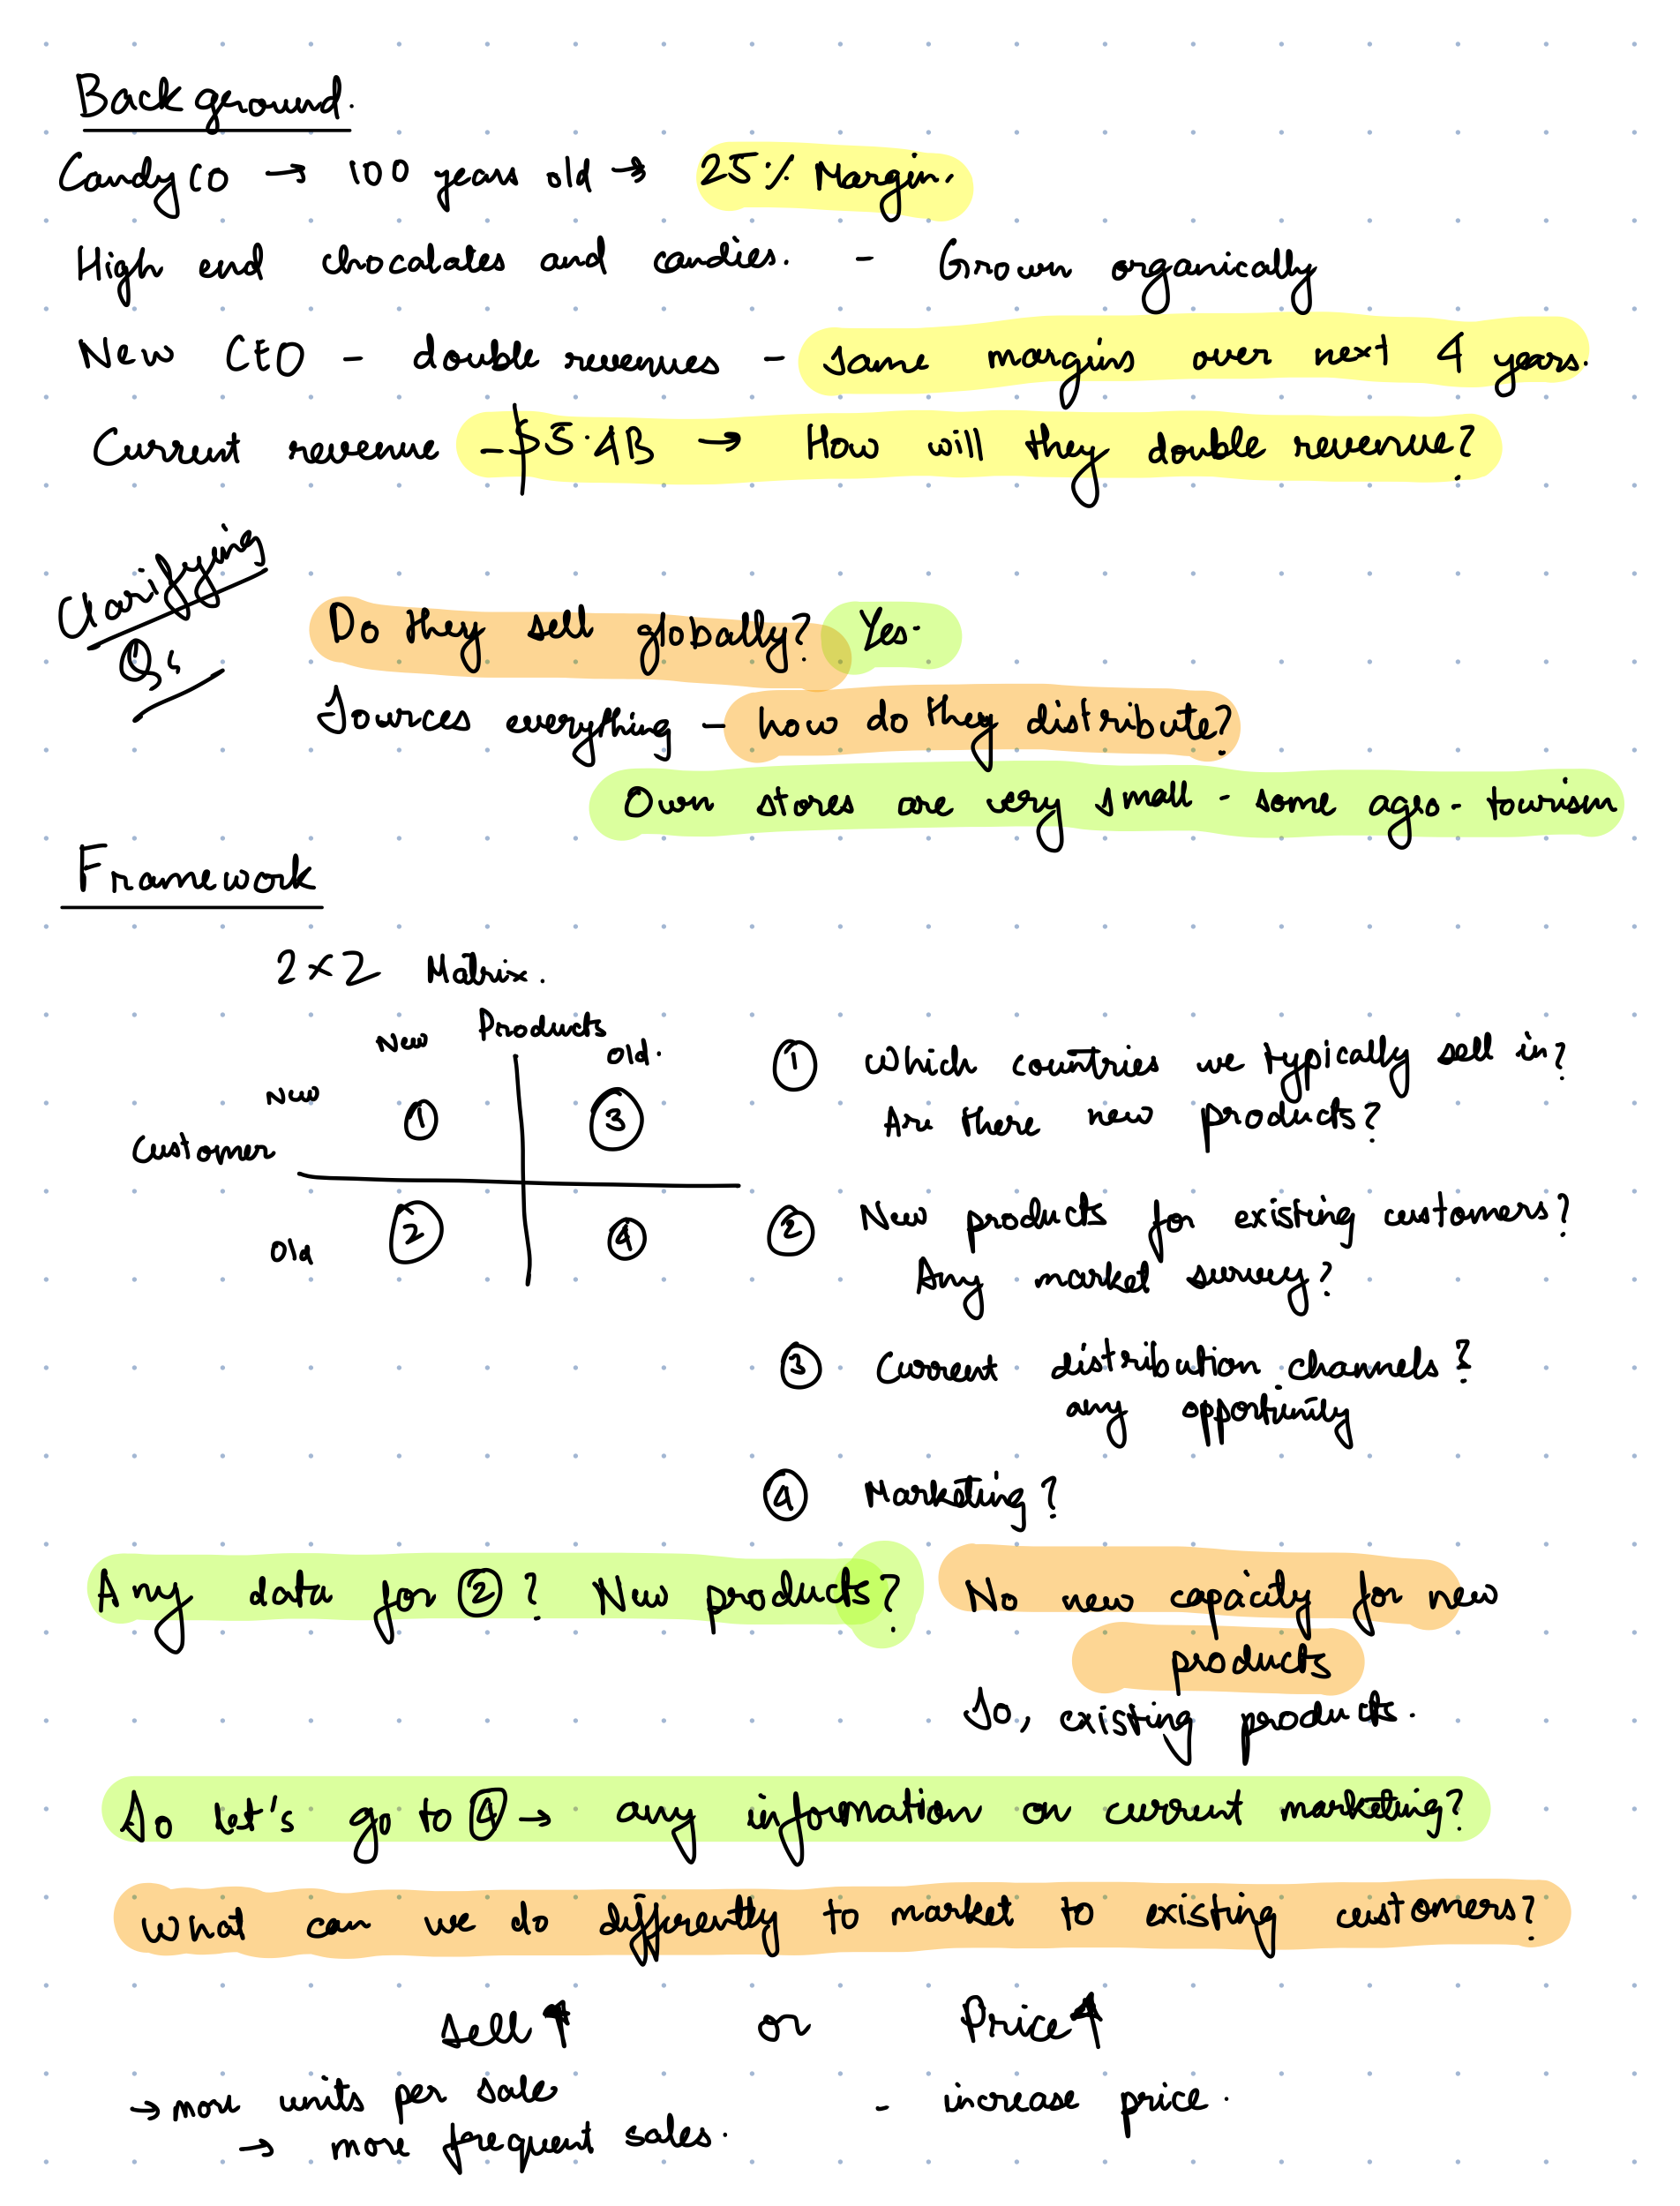 Background.
Candy CO → 100 years old → 25% Margin.
High end chocalates and candies. - Grown organically
New CEO - double revenues - same margins over next 4 years.
Current revenue - $5.4B → How will they double revenue?
Clarifying
Qs
Do they sell globally? Yes.
Sources everything - how do they distribute?
Own stores are very small - some agro-tourism
Framework
2×2 Matrix.
Products
New Old.
New
Customer
① ③
Old
② ④
① Which countries we typically sell in?
Are there new products?
② New products for existing customers?
Any market survey?
③ Current distribution channels?
any opportunity
④ Marketing?
Any data for ②? New products? No new capacity for new
products
So, existing products.
So let's go to ④ → any information on current marketing?
What can we do differently to market to existing customers?
Sell ↑ or Price ↑
→ more units per sale - increase price.
→ more frequent sales.